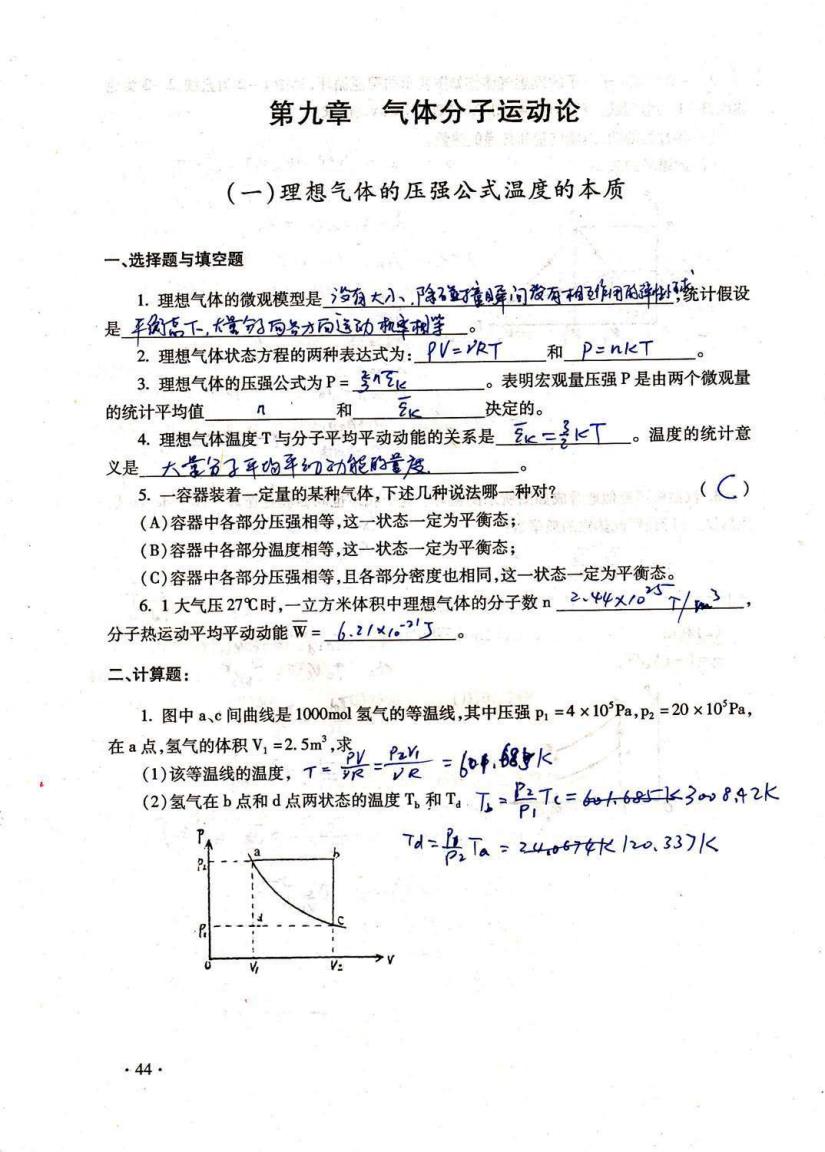 第九章 气体分子运动论
(一)理想气体的压强公式温度的本质
一、选择题与填空题
1. 理想气体的微观模型是 没有大小、除碰撞瞬间没有相互作用的弹性小球,统计假设
是 平衡态下,大量分子向各方向运动机率相等 。
2. 理想气体状态方程的两种表达式为: PV=νRT 和 P=nKT 。
3. 理想气体的压强公式为 P = ⅔nε̄k 。表明宏观量压强 P 是由两个微观量
的统计平均值 n 和 ε̄k 决定的。
4. 理想气体温度 T 与分子平均平动动能的关系是 ε̄k=3/2KT 。温度的统计意
义是 大量分子平均平动动能的量度 。
5. 一容器装着一定量的某种气体,下述几种说法哪一种对? ( C )
(A)容器中各部分压强相等,这一状态一定为平衡态;
(B)容器中各部分温度相等,这一状态一定为平衡态;
(C)容器中各部分压强相等,且各部分密度也相同,这一状态一定为平衡态。
6. 1 大气压 27℃时,一立方米体积中理想气体的分子数 n 2.44×10²⁵个/m³ ,
分子热运动平均平动动能 W̄ = 6.21×10⁻²¹J 。
二、计算题:
1. 图中 a、c 间曲线是 1000mol 氢气的等温线,其中压强 p₁ =4 ×10⁵Pa,p₂ =20 ×10⁵Pa,
在 a 点,氢气的体积 V₁ =2. 5m³,求
(1)该等温线的温度, T=PV/νR=P₂V₁/νR=601.685K
(2)氢气在 b 点和 d 点两状态的温度 Tb 和 Td Tb=P₂/P₁Tc=601.685K3008.42K
Td=P₁/P₂Ta=120.337K
P
P₂ a b
P₁ d c
0 V₁ V₂ V
· 44 ·